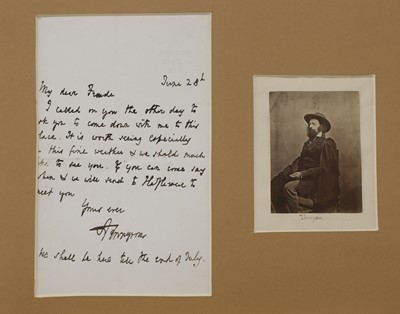 June 28th
My dear Froude
I called on you the other day to
ask you to come down with me to this
place. It is worth seeing especially
in this fine weather & we should much
like to see you. If you can come say
when & we will send to to
meet you
Yours ever
We shall be here till the end of July.